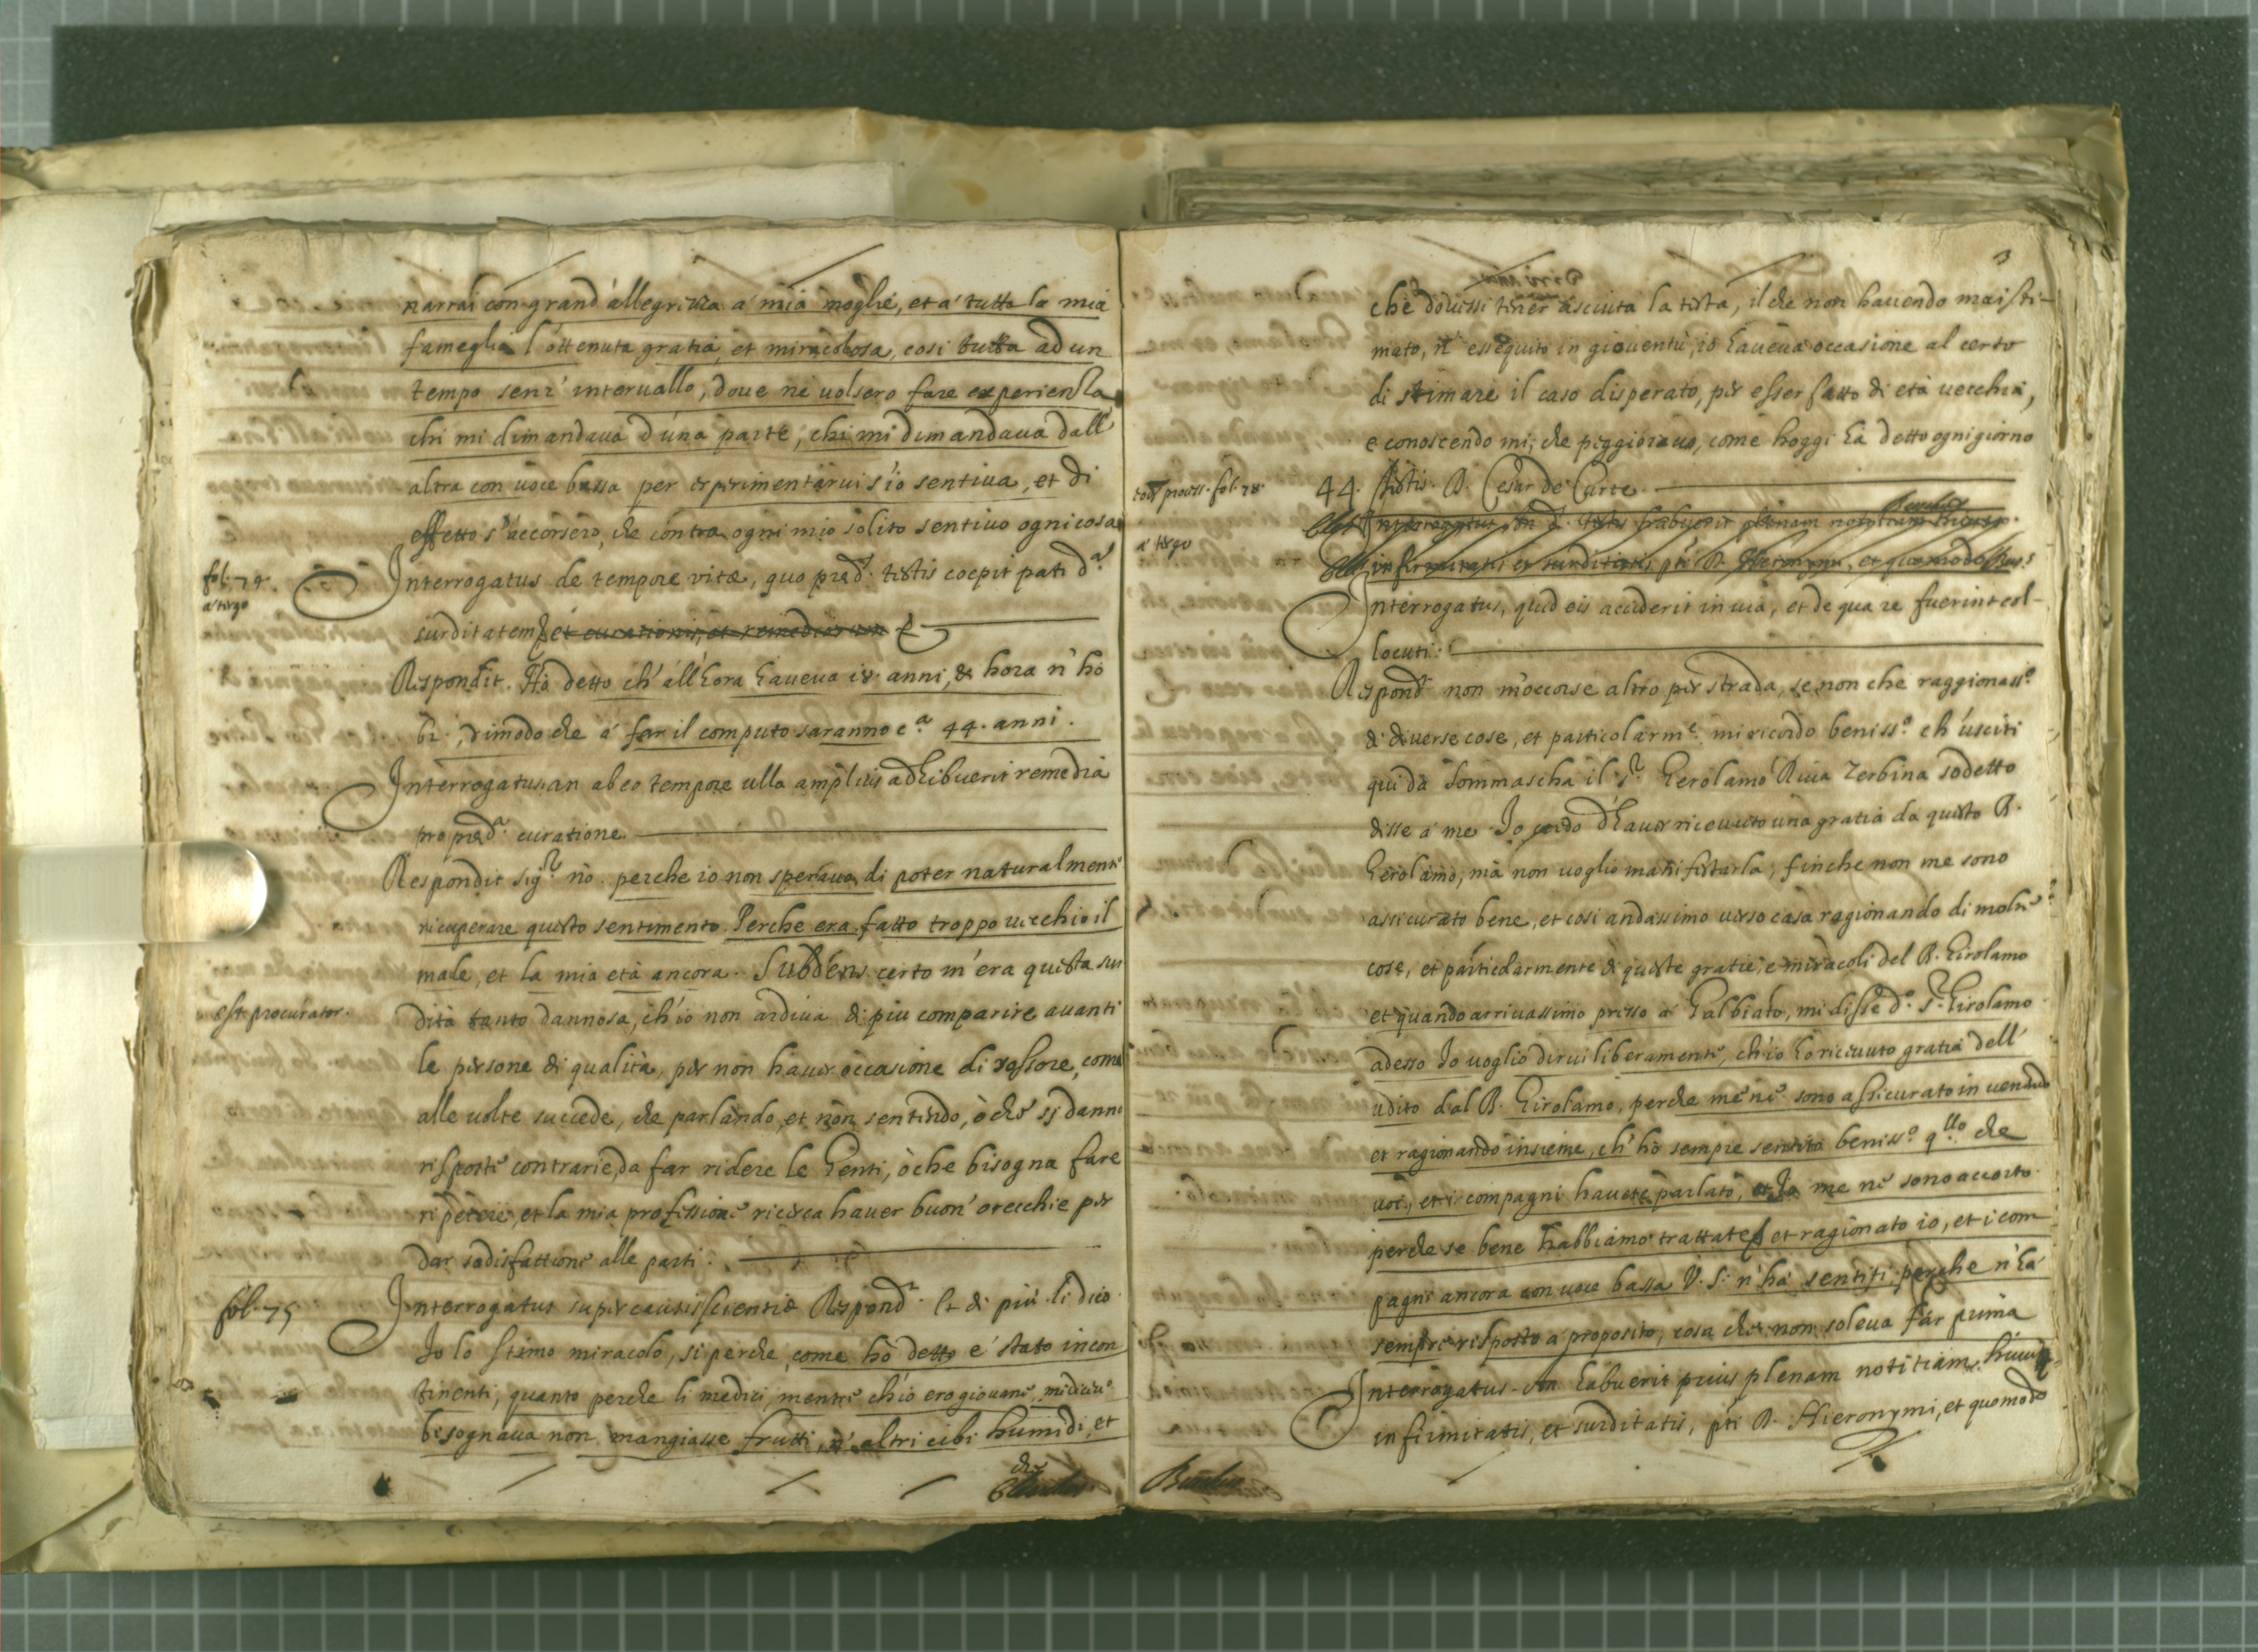 narrai con grand'allegrezza a' mia moglie, et a' tutta la mia
fameglia l'ottenuta gratia, et miracolosa, cosi tutta ad un
tempo senz' intervallo, dove ne volsero fare experienza
chi mi dimandava d'una parte, chi mi dimandava dall'
altra con voce bassa per esperimentarui s'io sentiva, et di
effetto s'accorsero, che contra ogni mio solito sentivo ogni cosa
fol. 74.
a' tergo
Interrogatus de tempore vitæ, quo præd. testis coepit pati d.ª
surditatem et curationis, et remediorum
Respondit. Hò detto ch' all'hora haveva 18. anni, & hora n' hò
62. dimodo che á far il computo saranno c.ª 44. anni.
Interrogatus. an ab eo tempore ulla amplius adhibuerit remedia
pro præd.ª curatione
Respondit sig.r nò. perche io non sperava di poter naturalmente
ricuperare questo sentimento. Perche era fatto troppo vecchio il
male, et la mia età ancora. Subdens certo m'era questa sur
est procurator.
dità tanto dannosa, ch'io non ardiva di piu comparire avanti
le persone di qualità, per non haver occasione di rossore, come
alle volte succede, che parlando, et non sentendo, ò che si danno
risposte contrarie, da far ridere le genti, ò che bisogna fare
ripetere, et la mia professione ricerca haver buon' orecchie per
dar sodisfattione alle parti.
fol. 75
Interrogatus super causa scientiæ Respond.t Et di più li dico
Io lo stimo miracolo, si perche, come hò detto e' stato incon
tinenti, quanto perche li medici, mentre ch'io ero giovane, mi dicev.o
bisognava non mangiasse frutti, n' altri cibi humidi, et
che
3
che dovessi tener asciuta la testa, il che non havendo mai sti-
mato, n' essequito in gioventù, io haveva occasione al certo
di stimare il caso disperato, per esser fatto di età vecchia,
e conoscendo mi, che peggiorava, come hoggi hà detto ogni giorno
eod. process. fol. 78.
a' tergo
44. Testis. D. Cesar de Curte
Interrogatus, quid eis acciderit in via, et de qua re fuerint col-
locuti:
Respond.t non m'occorse altro per strada, se non che raggionass.o
di diverse cose, et particolarm.e mi ricordo beniss.o ch' usciti
qui da Sommascha il s.r Gerolamo Riva Zerbina sodetto
disse a' me. Io credo d'haver ricevuto una gratia da questo B.
Gerolamo, mà non voglio manifestarla, finche non me sono
assicurato bene, et cosi andassimo verso casa ragionando di molte
cose, et particolarmente di queste gratie, e miracoli del B. Girolamo
et quando arrivassimo presso a' Galbiato, mi disse d.o s.r Girolamo
adesso Io voglio dirui liberamente, ch'io hò ricevuto gratia dell'
udito dal B. Girolamo, perche me ne sono assicurato in venendo
et ragionando insieme, ch' hò sempre sentito beniss.o q.llo che
voi, et i compagni havete parlato, et Io me ne sono accorto
perche se bene habbiamo trattate et ragionato io, et i com
pagni ancora con voce bassa V. S. n' ha' sentiti perche n' hà
sempre risposto a' proposito, cosa che non soleva far prima
Interrogatus. An habuerit prius plenam notitiam huius
infirmitatis, et surditatis, pti D. Hieronymi, et quomodo